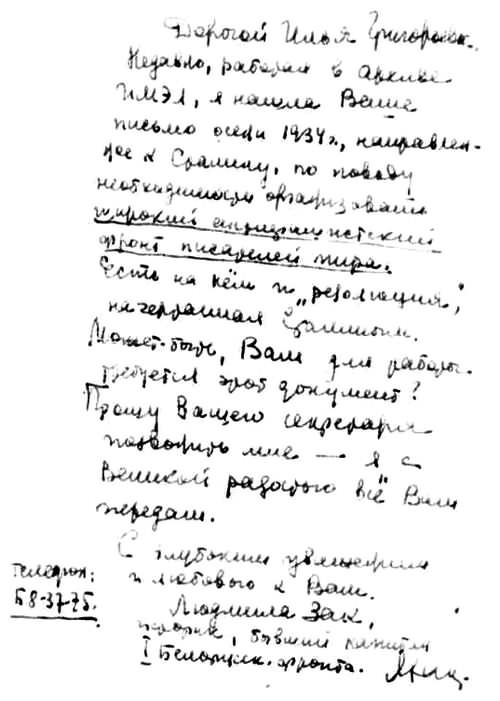 Дорогой Илья Григорьевич.
Недавно, работая в архиве
ИМЭЛ, я нашла Ваше
письмо осени 1934 г., направлен-
ное к Сталину, по поводу
необходимости организовать
широкий антифашистский
фронт писателей мира.
Есть на нём и „резолюция",
начертанная Сталиным.
Может-быть, Вам для работы
требуется этот документ?
Прошу Вашего секретаря
позвонить мне — я с
великой радостью всё Вам
передам.
С глубоким уважением
и любовью к Вам.
Людмила Зак,
историк, бывший капитан
I Белорусск. фронта.
Телефон:
Б8-37-75.